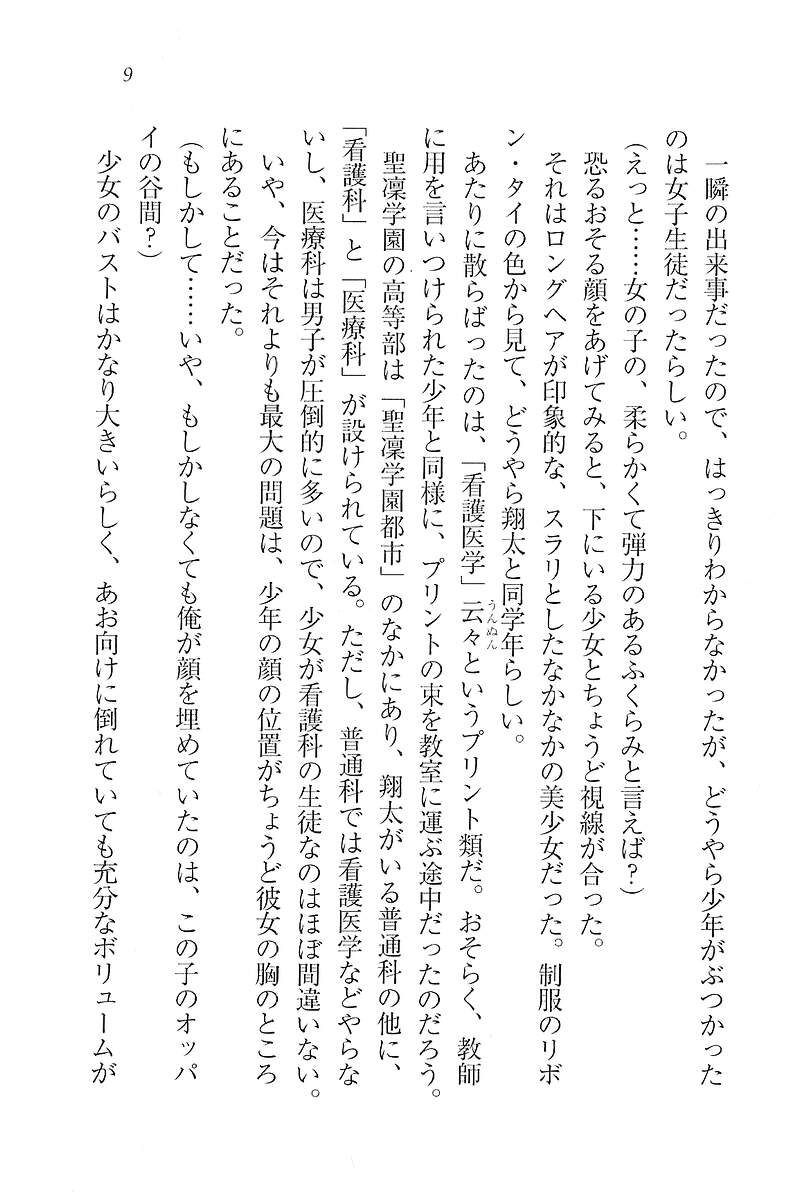 9
一瞬の出来事だったので、はっきりわからなかったが、どうやら少年がぶつかった
のは女子生徒だったらしい。
(えっと……女の子の、柔らかくて弾力のあるふくらみと言えば?)
恐るおそる顔をあげてみると、下にいる少女とちょうど視線が合った。
それはロングヘアが印象的な、スラリとしたなかなかの美少女だった。制服のリボ
ン・タイの色から見て、どうやら翔太と同学年らしい。
あたりに散らばったのは、「看護医学」云々というプリント類だ。おそらく、教師
うんぬん
に用を言いつけられた少年と同様に、プリントの束を教室に運ぶ途中だったのだろう。
聖凜学園の高等部は「聖凜学園都市」のなかにあり、翔太がいる普通科の他に、
「看護科」と「医療科」が設けられている。ただし、普通科では看護医学などやらな
いし、医療科は男子が圧倒的に多いので、少女が看護科の生徒なのはほぼ間違いない。
いや、今はそれよりも最大の問題は、少年の顔の位置がちょうど彼女の胸のところ
にあることだった。
(もしかして……いや、もしかしなくても俺が顔を埋めていたのは、この子のオッパ
イの谷間?)
少女のバストはかなり大きいらしく、あお向けに倒れていても充分なボリュームが